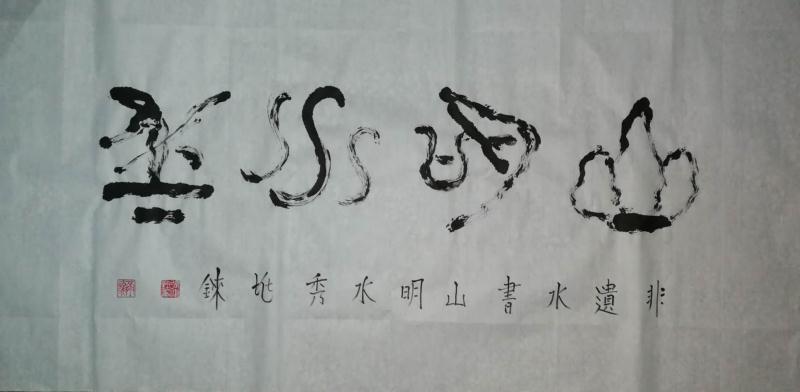 山明水秀
非遺水書山明水秀